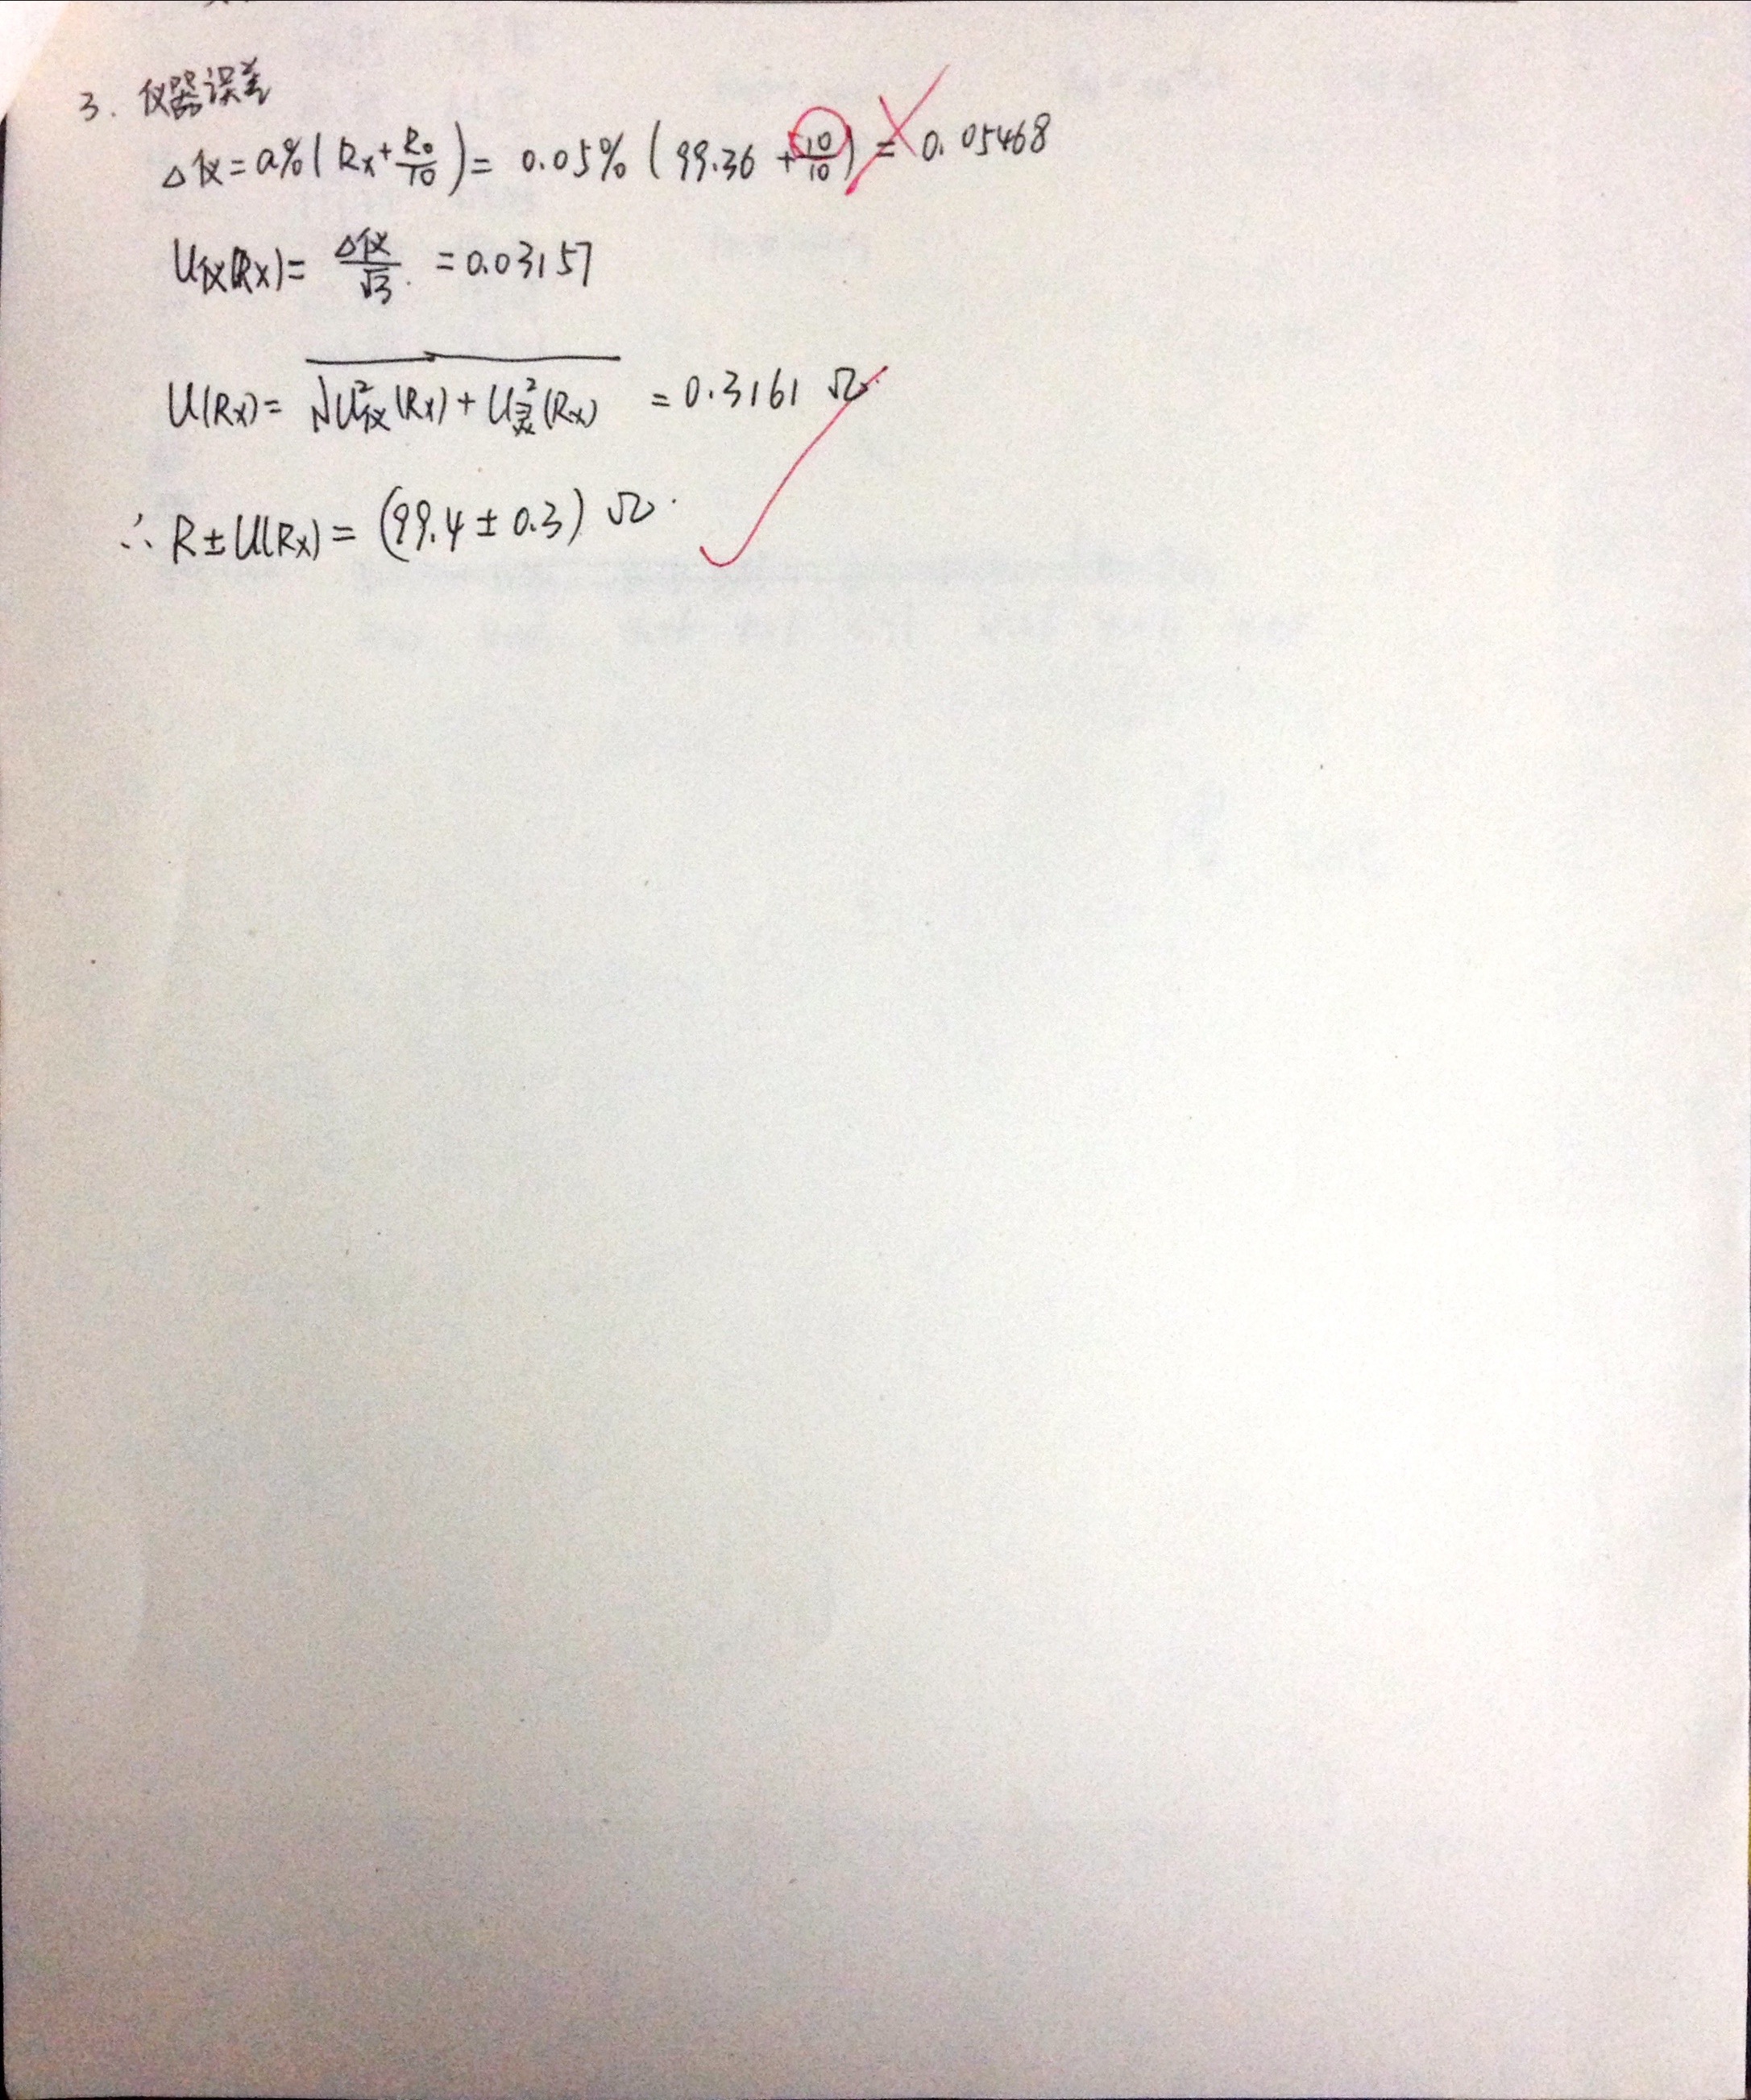 3. 仪器误差
Δ仪 = a%(Rx + R0/10) = 0.05% (99.36 + 10/10) = 0.05468
U仪(Rx) = Δ仪/√3 = 0.03157
U(Rx) = √U²仪(Rx) + U²灵(Rx) = 0.3161 Ω.
∴ R ± U(Rx) = (99.4 ± 0.3) Ω.